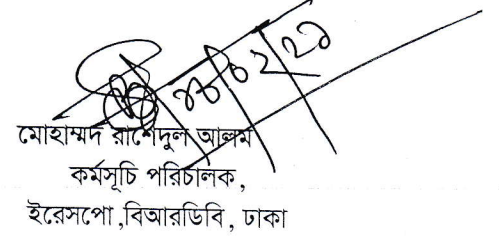 মোহাম্মদ রাশেদুল আলম
কর্মসূচি পরিচালক,
ইরেসপো ,বিআরডিবি, ঢাকা